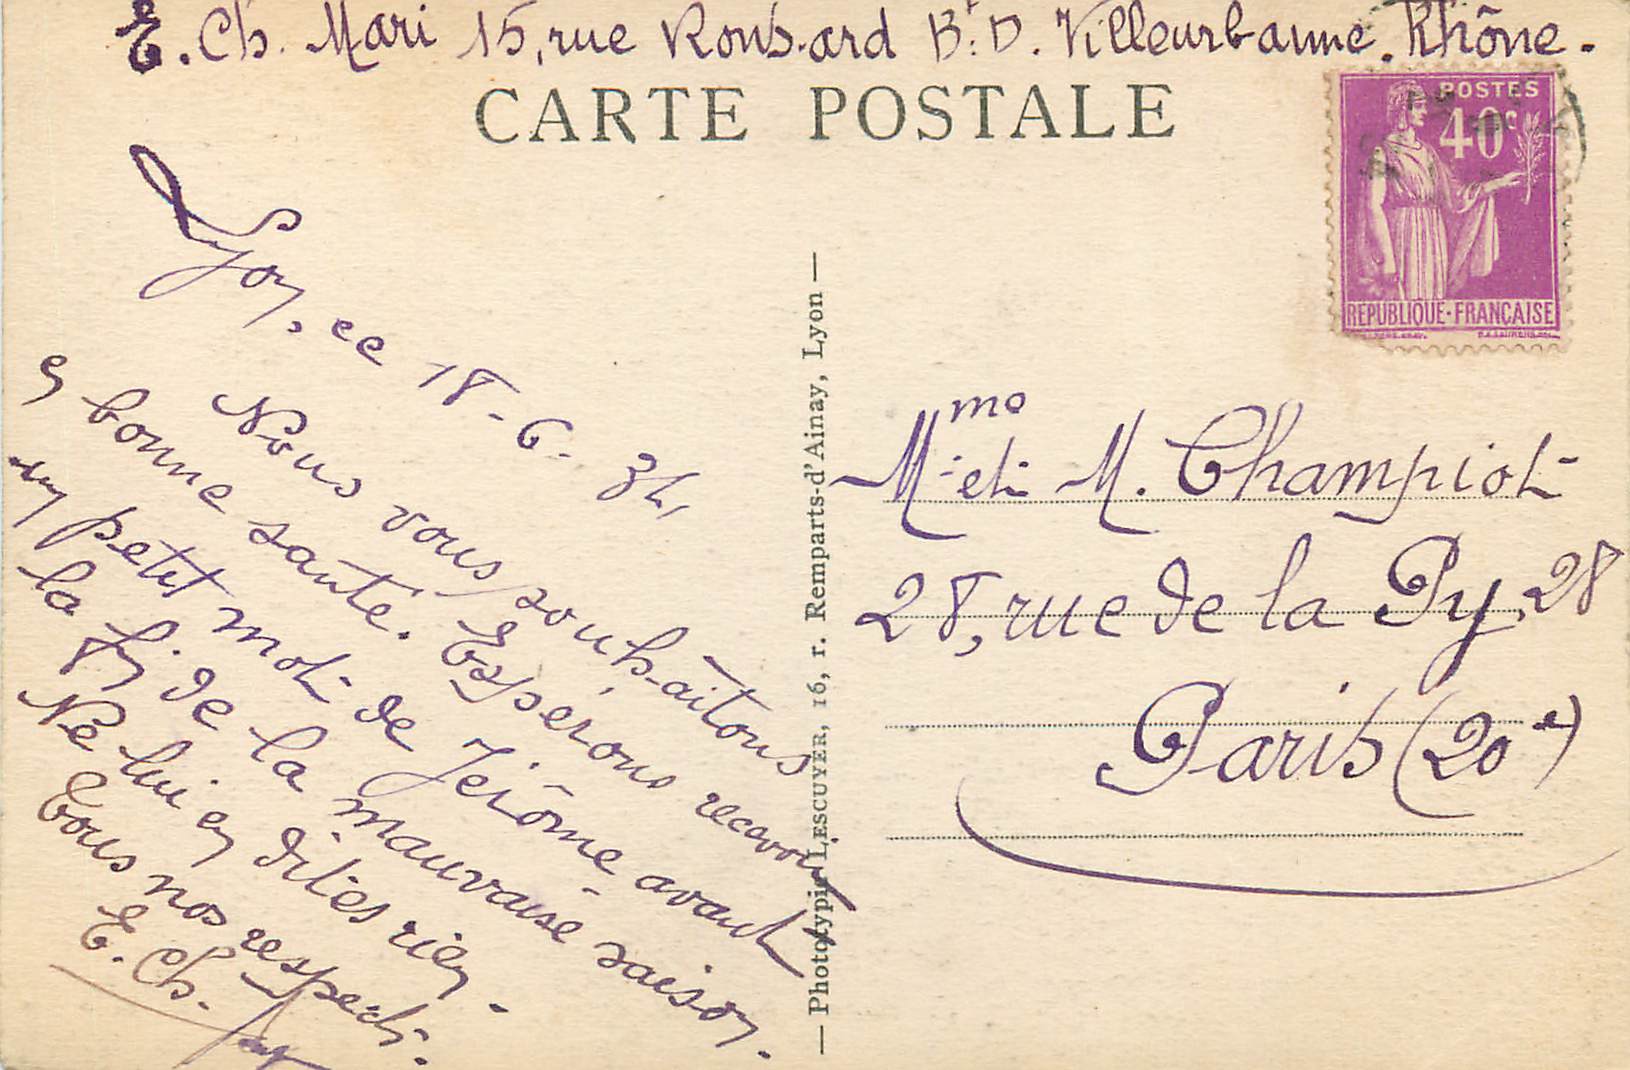 E. Ch. Mari 15, rue Ronsard Bt. D. Villeurbanne. Rhône.
CARTE POSTALE
POSTES
40c
REPUBLIQUE-FRANÇAISE
Lyon, ce 18-6-34,
Nous vous souhaitons
en bonne santé. Espérons recevoir
un petit mot de Jérôme avant
la fin de la mauvaise saison.
Ne lui en dites rien.
Tous nos respects.
E. Ch.
— Phototypie LESCUYER, 16, r. Remparts-d'Ainay, Lyon —
Mme et M. Champiot
28, rue de la Py, 28
Paris (20e)